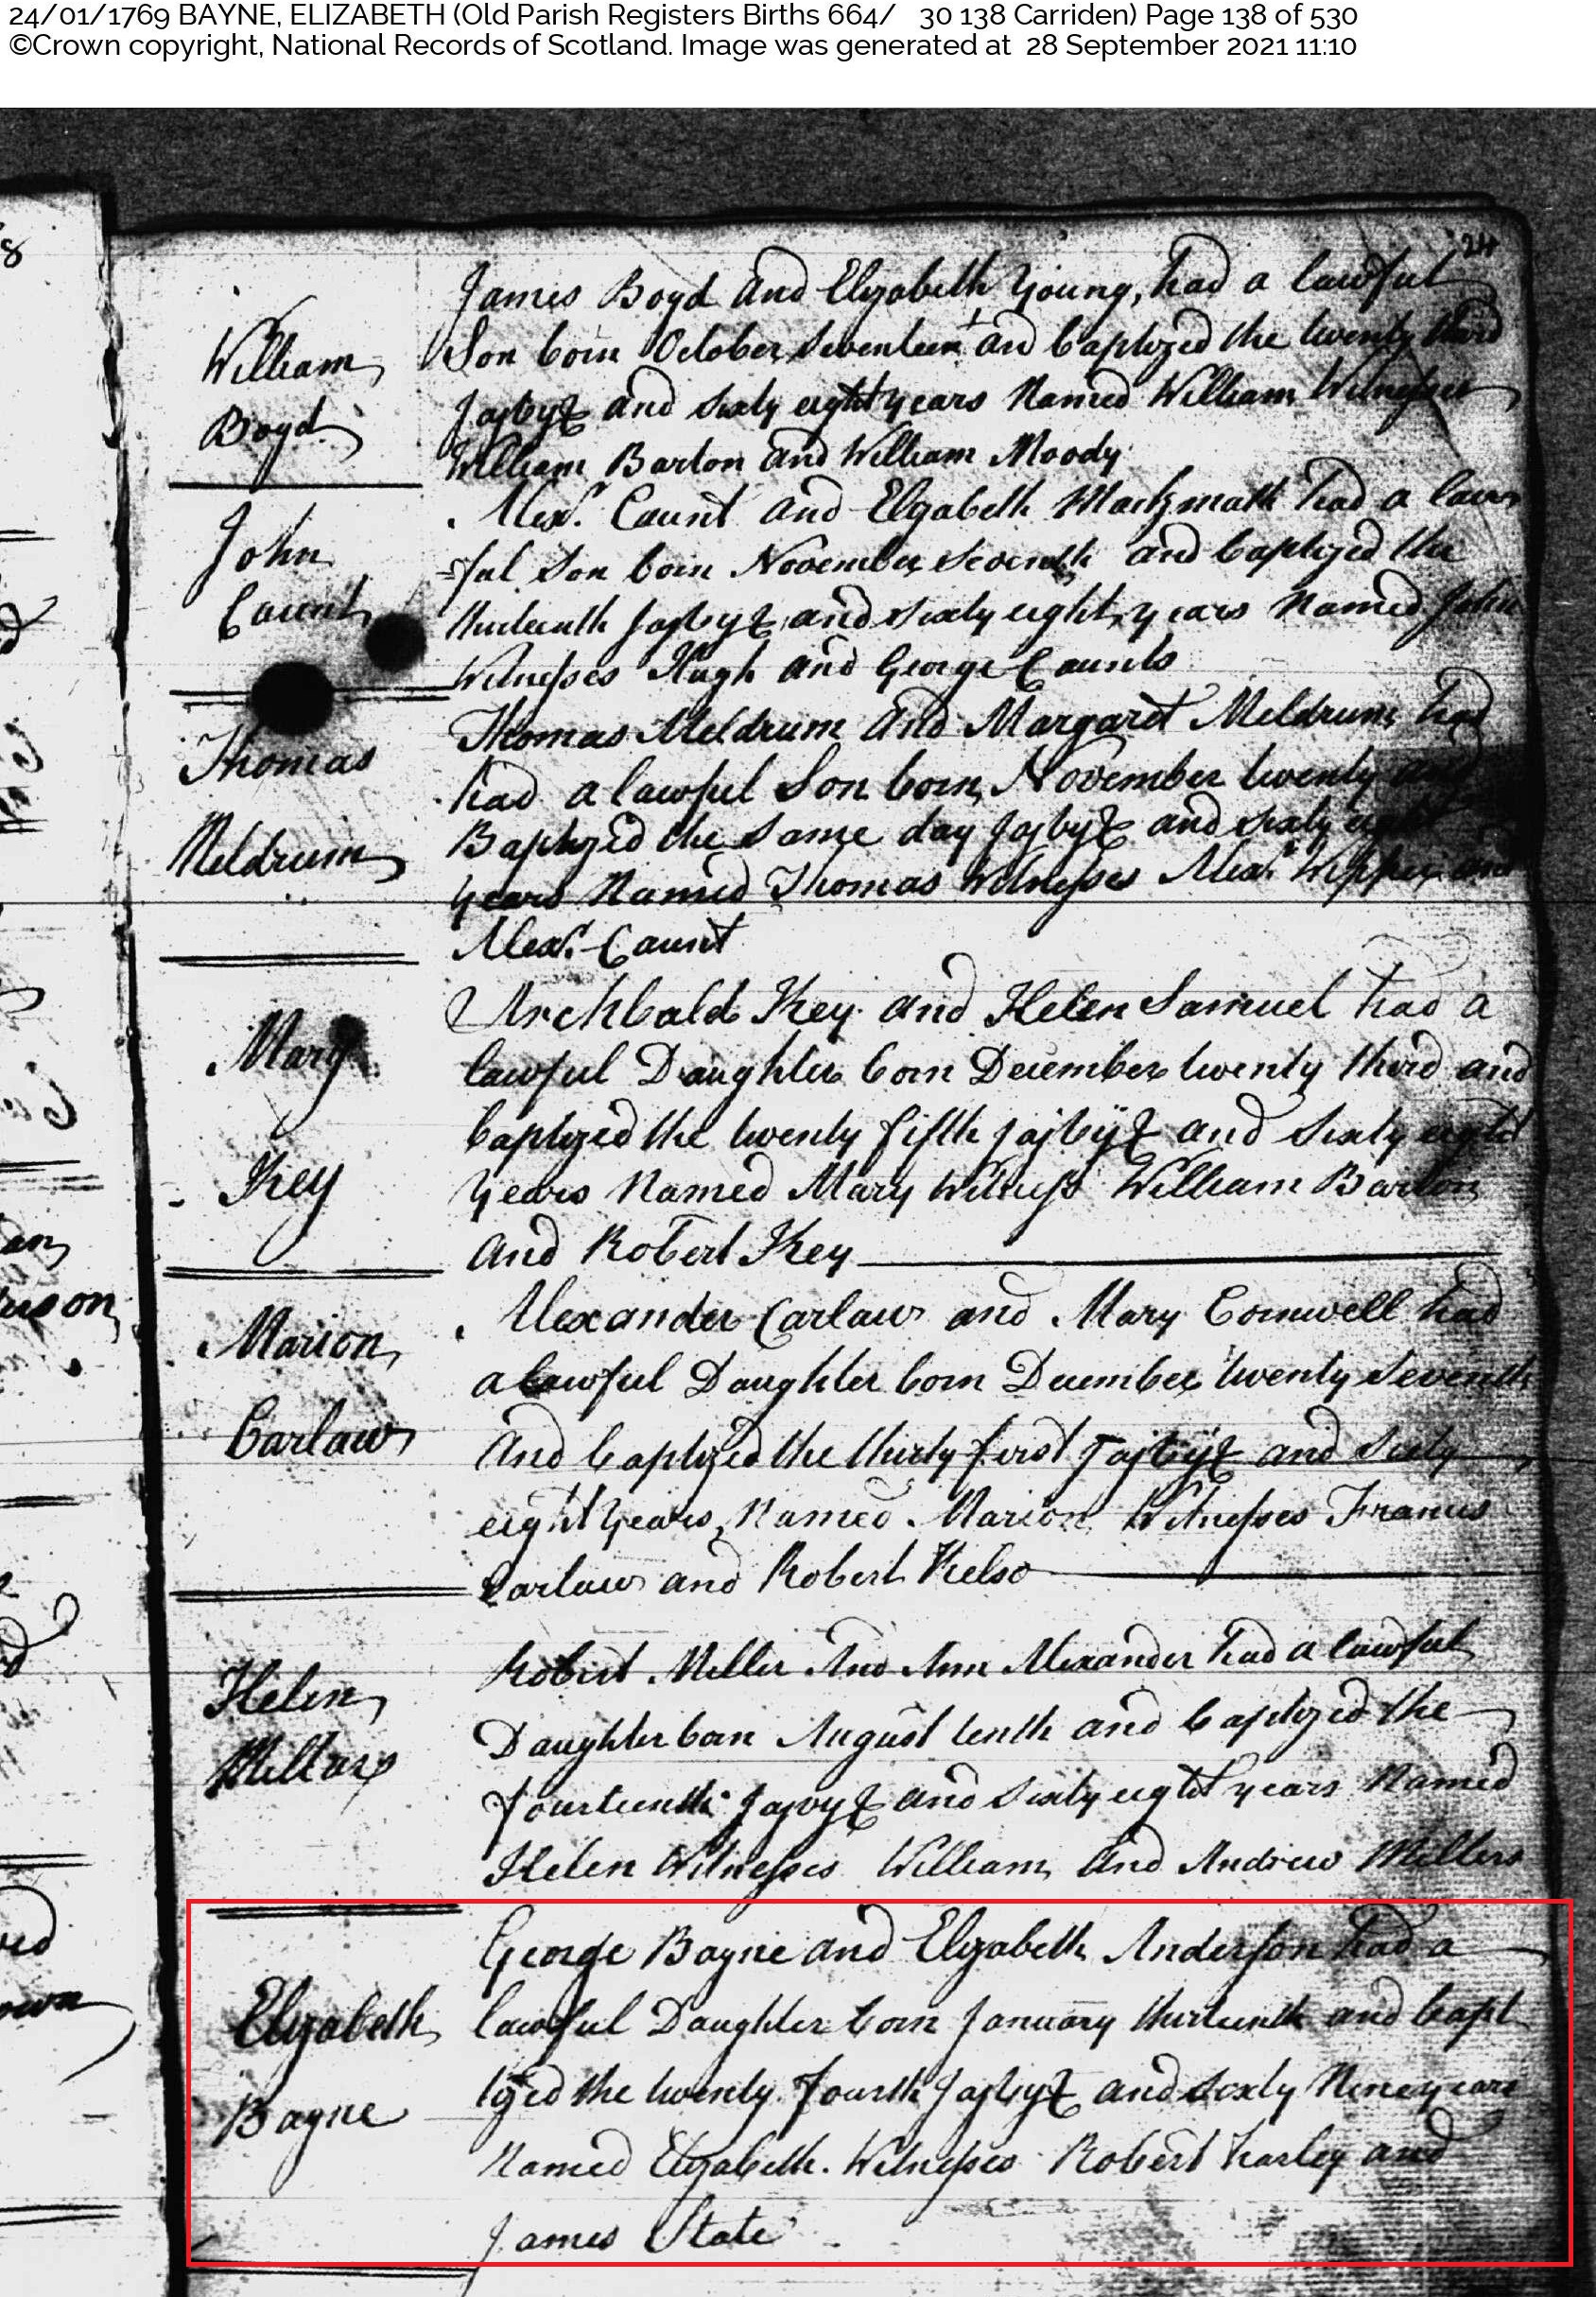 24/01/1769 BAYNE, ELIZABETH (Old Parish Registers Births 664/ 30 138 Carriden) Page 138 of 530
©Crown copyright, National Records of Scotland. Image was generated at 28 September 2021 11:10
24
8
William
Boyd
James Boyd and Elizabeth Young, had a lawful
Son born October Seventeen and baptized the twenty third
Jajbyʒ and sixty eight years Named William Witnesses
William Barton and William Moody
John
Caunt
Alexr. Caunt and Elizabeth had a law
=ful Son born November Seventh and baptized the
thirteenth Jajbyʒ and sixty eight years Named John
Witnesses Hugh and George Caunts
Thomas
Meldrum
Thomas Meldrum and Margaret Meldrum had
had a lawful Son born November twenty and
Baptized the same day Jajbyʒ and sixty eight
years Named Thomas Witnesses Alexr. and
Alexr. Caunt
Mary
Key
Archbald Key and Helen Samuel had a
lawful Daughter born December twenty third and
baptized the twenty fifth jajbyʒ and sixty eight
years Named Mary Witness William Barton
and Robert Key
Marion
Carlaw
Alexander Carlaw and Mary Cornwell had
a lawful Daughter born December twenty seventh
And baptized the thirty first Jajbyʒ and sixty
eight years, Named Marion Witnesses Francis
Carlaw and Robert Kelso
Helen
Millar
Robert Miller And Ann Alexander had a lawful
Daughter born August tenth and baptized the
fourteenth Jajvyʒ and sixty eight years Named
Helen Witnesses William And Andrew Millers
Elizabeth
Bayne
George Bayne and Elizabeth Anderson had a
lawful Daughter born January thirteenth and bapt
ized the twenty fourth Jajbyʒ and sixty Nine years
Named Elizabeth. Witnesses Robert and
James State